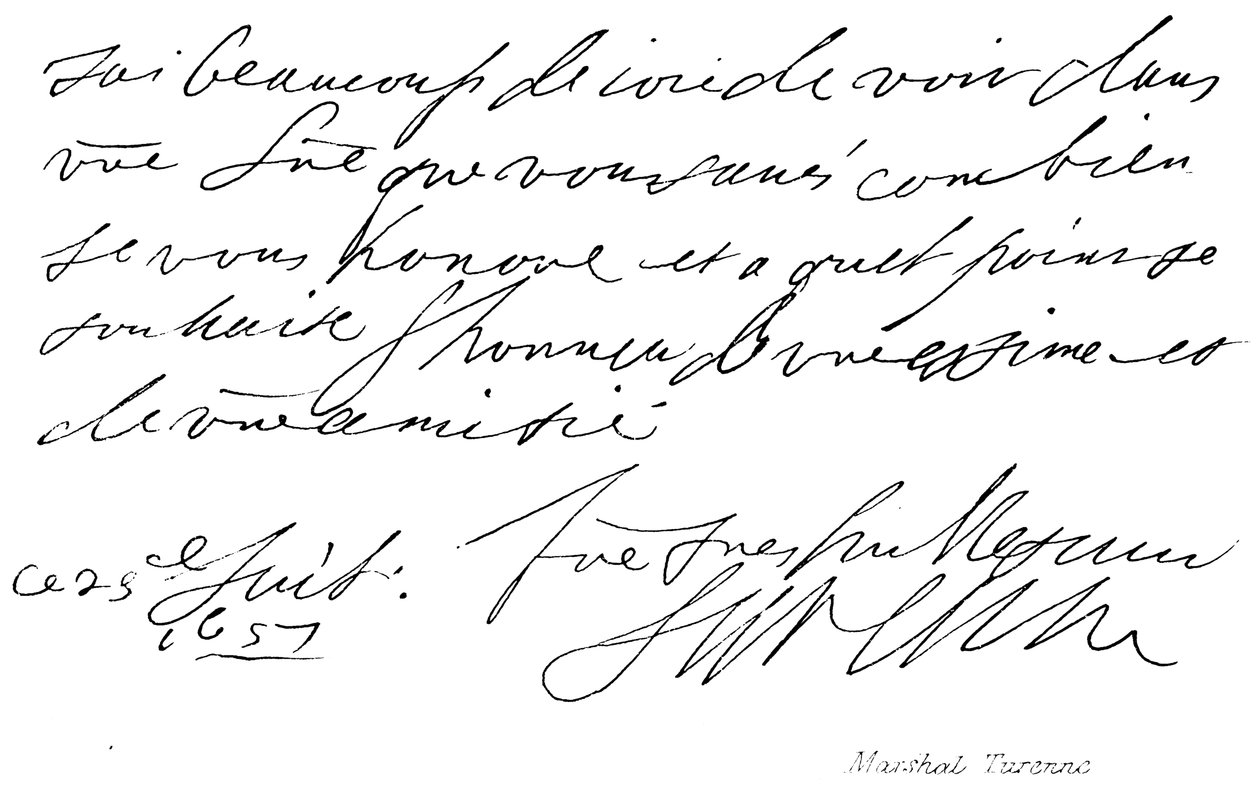 jai beaucoup de ioie de voir dans
vr̄e lr̄e que vous saués combien
je vous honore et a quel point je
souhaite lhonneur de vr̄e estime et
de vr̄e amitié
Vr̄e tres humble
ce 25e Juil:
1657
Marshal Turenne